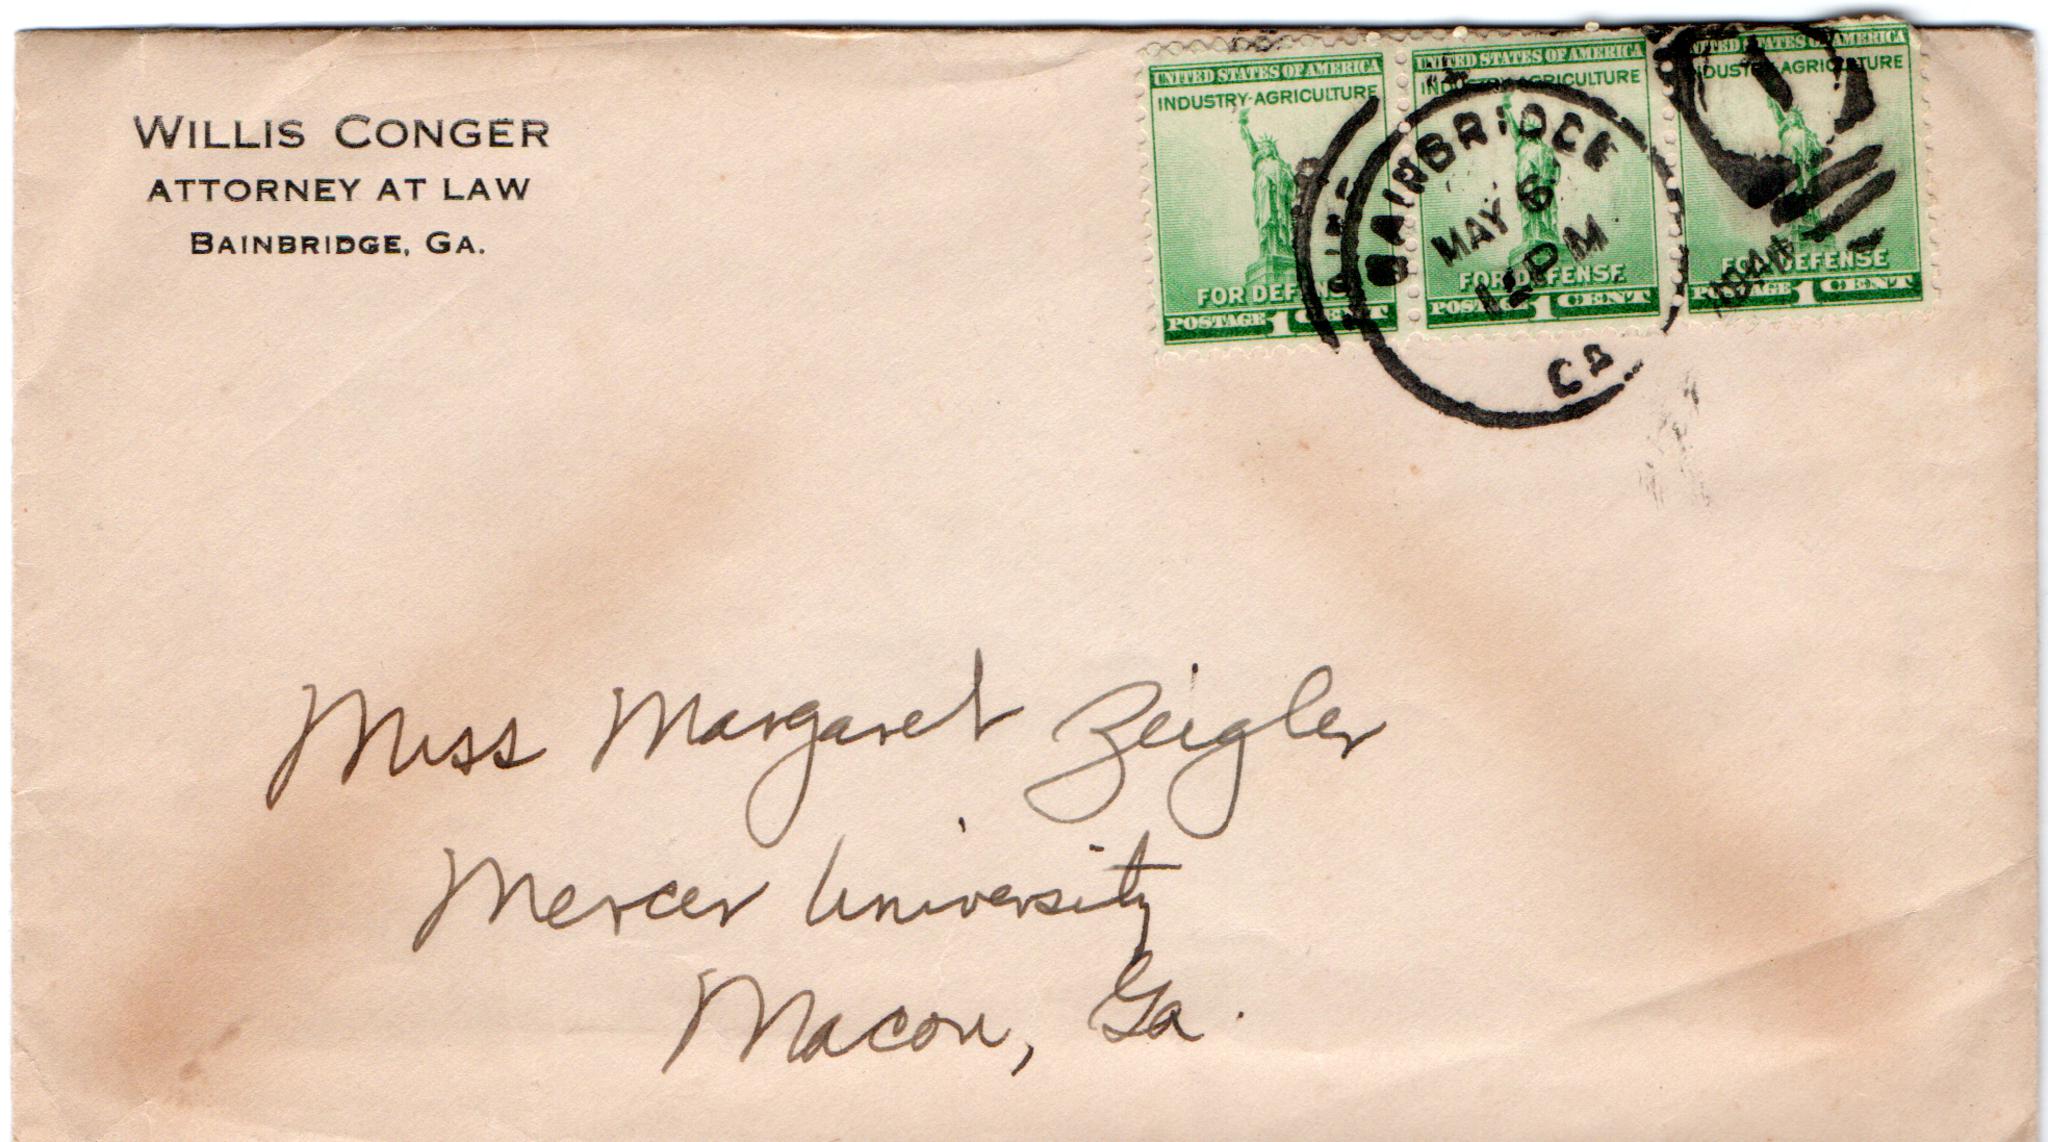 WILLIS CONGER
ATTORNEY AT LAW
BAINBRIDGE, GA.
UNITED STATES OF AMERICA
INDUSTRY-AGRICULTURE
FOR DEFENSE
POSTAGE 1 CENT
UNITED STATES OF AMERICA
INDUSTRY AGRICULTURE
FOR DEFENSE
POSTAGE 1 CENT
UNITED STATES OF AMERICA
INDUSTRY AGRICULTURE
FOR DEFENSE
POSTAGE 1 CENT
BAINBRIDGE
MAY 6
PM
GA
Miss Margaret Zeigler
Mercer University
Macon, Ga.